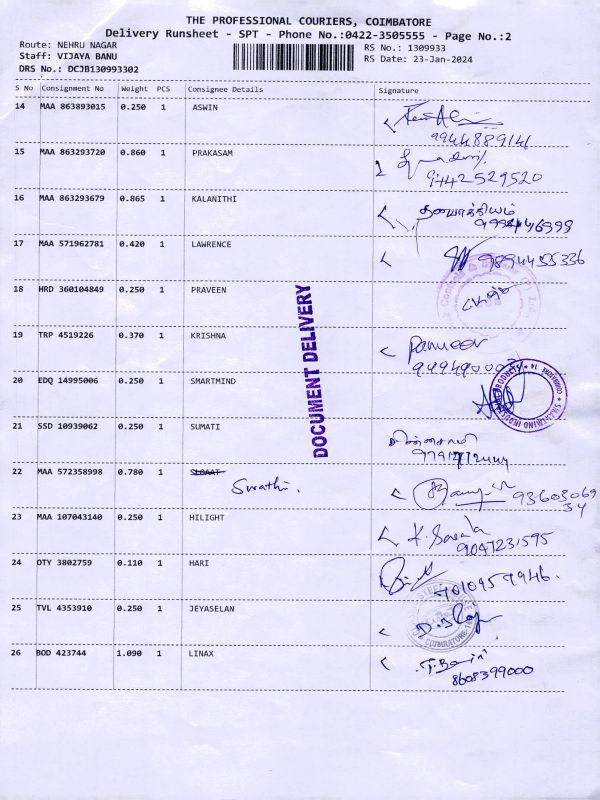 THE PROFESSIONAL COURIERS, COIMBATORE
Delivery Runsheet - SPT - Phone No.:0422-3505555 - Page No.:2
Route: NEHRU NAGAR
RS No.: 1309933
Staff: VIJAYA BANU
RS Date: 23-Jan-2024
DRS No.: DCJB130993302
S No Consignment No Weight PCS Consignee Details Signature
14 MAA 863893015 0.250 1 ASWIN
9944889141
15 MAA 863293720 0.860 1 PRAKASAM
9442529520
16 MAA 863293679 0.865 1 KALANITHI
17 MAA 571962781 0.420 1 LAWRENCE
9894455336
18 HRD 360104849 0.250 1 PRAVEEN
19 TRP 4519226 0.370 1 KRISHNA
20 EDQ 14995006 0.250 1 SMARTMIND
21 SSD 10939062 0.250 1 SUMATI
DOCUMENT DELIVERY
22 MAA 572358998 0.780 1
Swathi.
93603069
34
23 MAA 107043140 0.250 1 HILIGHT
K. Sarala
9047231595
24 OTY 3802759 0.110 1 HARI
7010959946.
25 TVL 4353910 0.250 1 JEYASELAN
26 BOD 423744 1.090 1 LINAX
8608399000